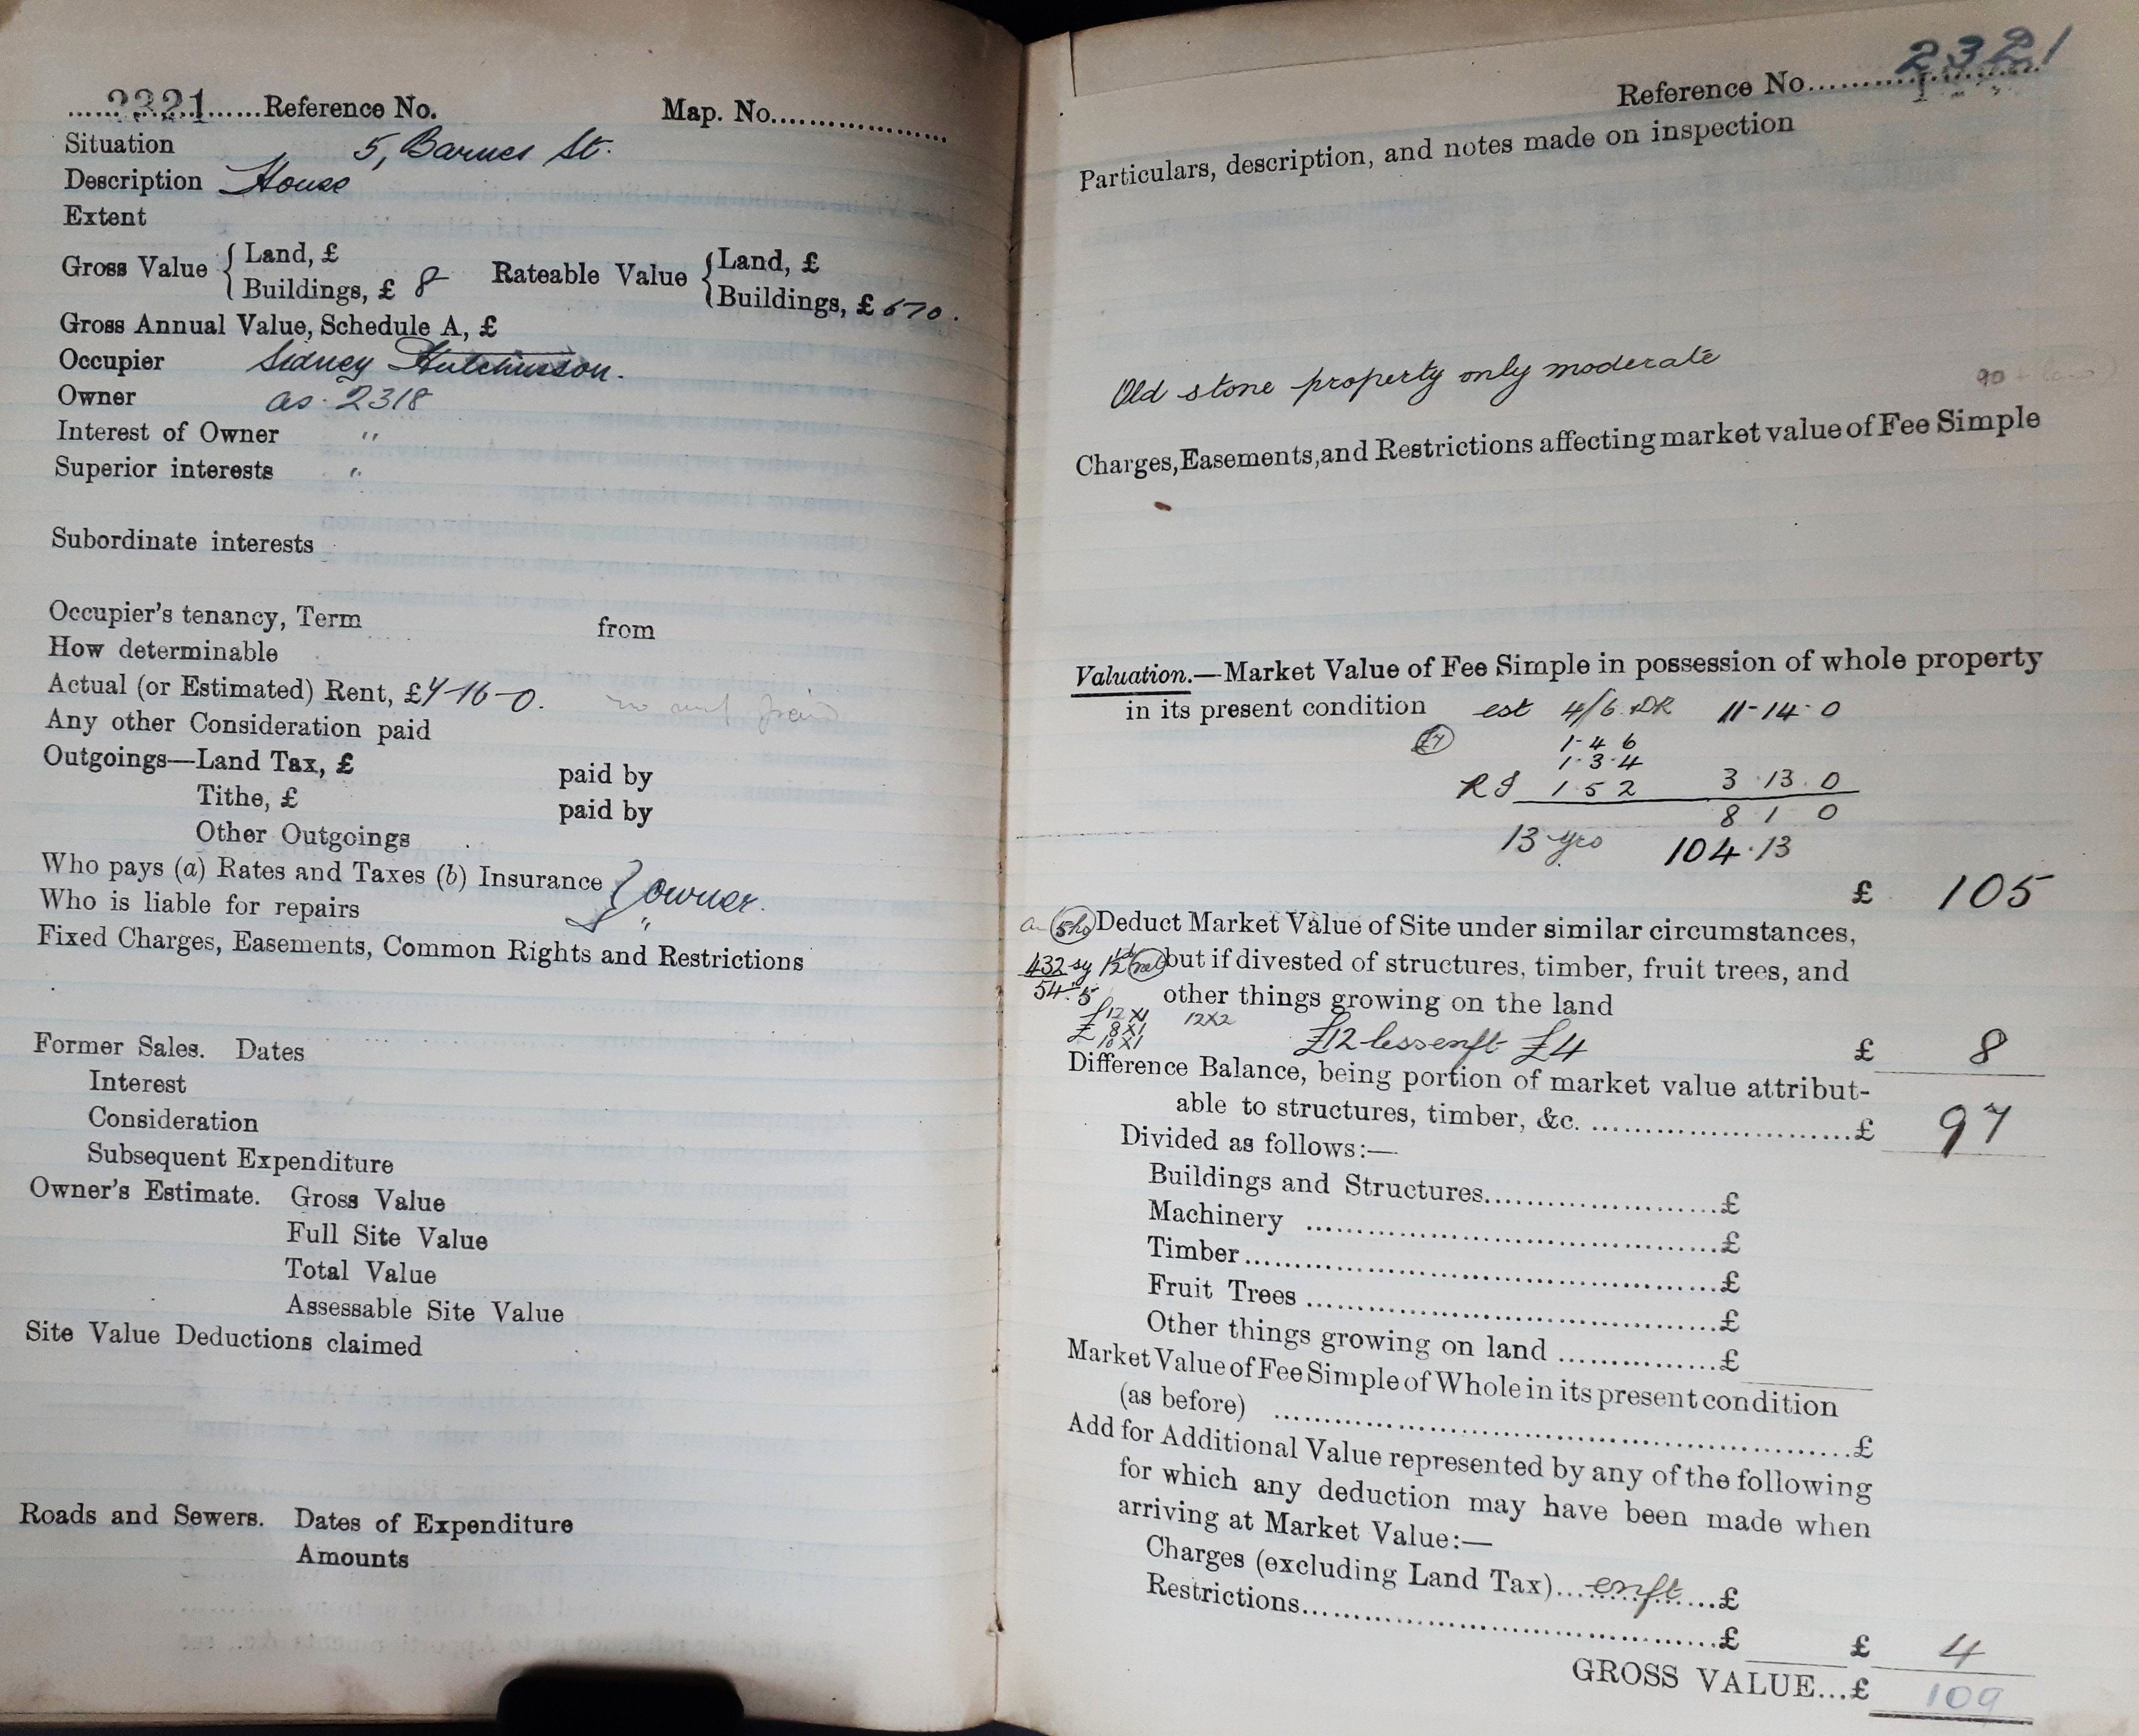 2321 Reference No. Map. No.
Situation 5, Barnes St.
Description House
Extent
Gross Value { Land, £ Rateable Value { Land, £
Buildings, £ 8 Buildings, £ 6 7 0.
Gross Annual Value, Schedule A, £
Occupier Sidney Hutchinson.
Owner as 2318
Interest of Owner "
Superior interests "
Subordinate interests
Occupier's tenancy, Term from
How determinable
Actual (or Estimated) Rent, £ 7-16-0.
Any other Consideration paid
Outgoings—Land Tax, £ paid by
Tithe, £ paid by
Other Outgoings
Who pays (a) Rates and Taxes (b) Insurance } owner.
Who is liable for repairs "
Fixed Charges, Easements, Common Rights and Restrictions
Former Sales. Dates
Interest
Consideration
Subsequent Expenditure
Owner's Estimate. Gross Value
Full Site Value
Total Value
Assessable Site Value
Site Value Deductions claimed
Roads and Sewers. Dates of Expenditure
Amounts
Reference No. 2321
Particulars, description, and notes made on inspection
Old stone property only moderate
90
Charges, Easements, and Restrictions affecting market value of Fee Simple
Valuation.—Market Value of Fee Simple in possession of whole property
in its present condition est 4/6 DR 11-14-0
£7 1-4 6
1-3-4
R I 1 5 2 3 13 0
8 1 0
13 yrs 104.13
£ 105
Deduct Market Value of Site under similar circumstances,
432 sy but if divested of structures, timber, fruit trees, and
54.5 other things growing on the land
£12 X1 12X2
£ 8X1 £12 less enft £4 £ 8
10X1
Difference Balance, being portion of market value attribut-
able to structures, timber, &c. £ 97
Divided as follows:—
Buildings and Structures £
Machinery £
Timber £
Fruit Trees £
Other things growing on land £
Market Value of Fee Simple of Whole in its present condition
(as before) £
Add for Additional Value represented by any of the following
for which any deduction may have been made when
arriving at Market Value:—
Charges (excluding Land Tax) enft £
Restrictions £ £ 4
GROSS VALUE...£ 109